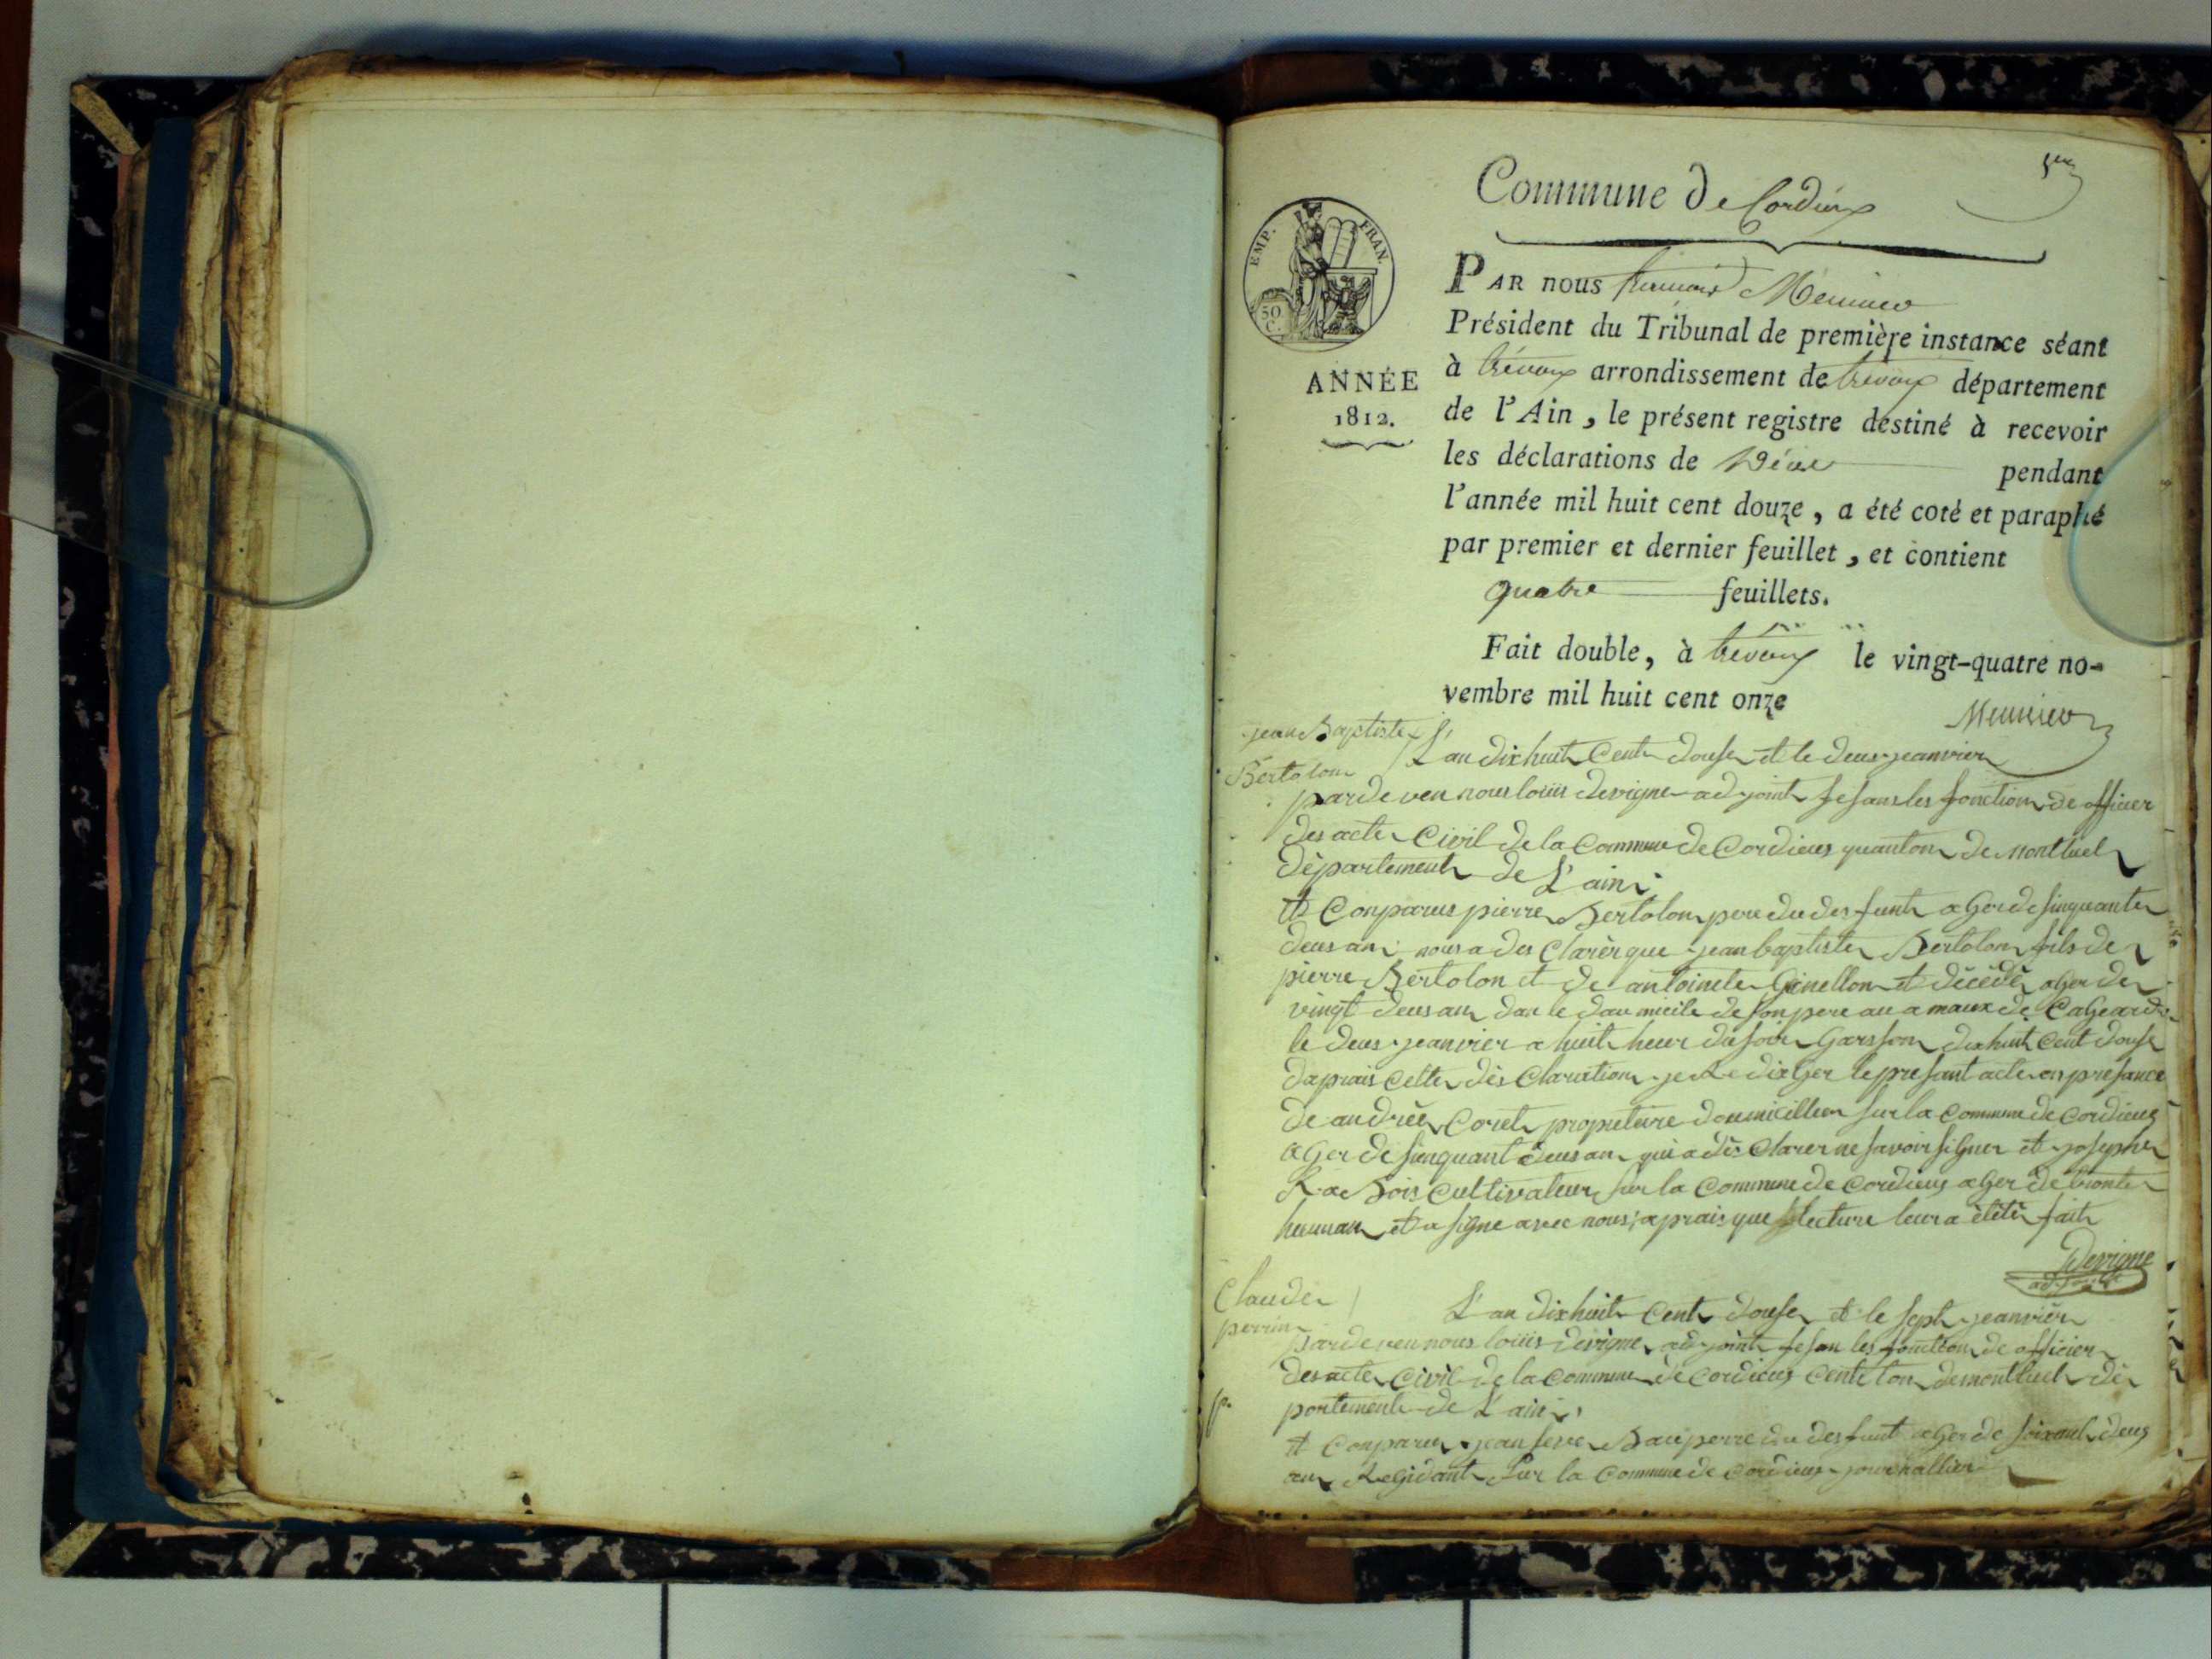 Commune de Cordieux
EMP. FRAN.
30
C.
PAR nous
Président du Tribunal de première instance séant
à trévoux arrondissement de trévoux département
ANNÉE
1812.
de l'Ain, le présent registre destiné à recevoir
les déclarations de Décès pendant
l'année mil huit cent douze, a été coté et paraphé
par premier et dernier feuillet, et contient
quatre feuillets.
Fait double, à trevoux le vingt-quatre no-
vembre mil huit cent onze
jean Baptiste
Bertolon
L'an dixhuit Cent douse et le deus jeanvier
pardeven nous loüis devigne adjoint fesans les fonction de officier
des acte Civil de la Commune de Cordieus quanton de montluel
département de L'ain
et Conparus pierre Bertolon pere du desfunt ager de sinquante
deus an nous a des Clarér que jean baptiste Bertolon fils de
pierre Bertolon et de antoinete Ginellon et décédé ager de
vingt deus an dan le daumicile de son pere au amaux de
le deus jeanvier a huit heur du soir Garsson dixhuit Cent douse
daprais Cette dés Claration je Redixger le presant acte en presance
de andrée Coret propietere doumicillier sur la Commune de Cordieus
ager de sinquant deus an qui a dés Clarer ne savoir signer et josephe
Rabois Cultivateur sur la Commune de Cordieus ager de tronte
heunan et a signe avec nous aprais que lecture leur a étété fait
Devigne
adjoint
Claude
perrin
L'an dixhuit Cent douse et le sept jeanvier
pardeven nous loüis devigne adjoint fesan les fonction de officier
des acte Civil de la Commune de Cordieus de montluel dé
portement de L'ain
et Conparu jean du desfunt ager de soixant deus
an Regidant sur la Commune de Cordieus journallier